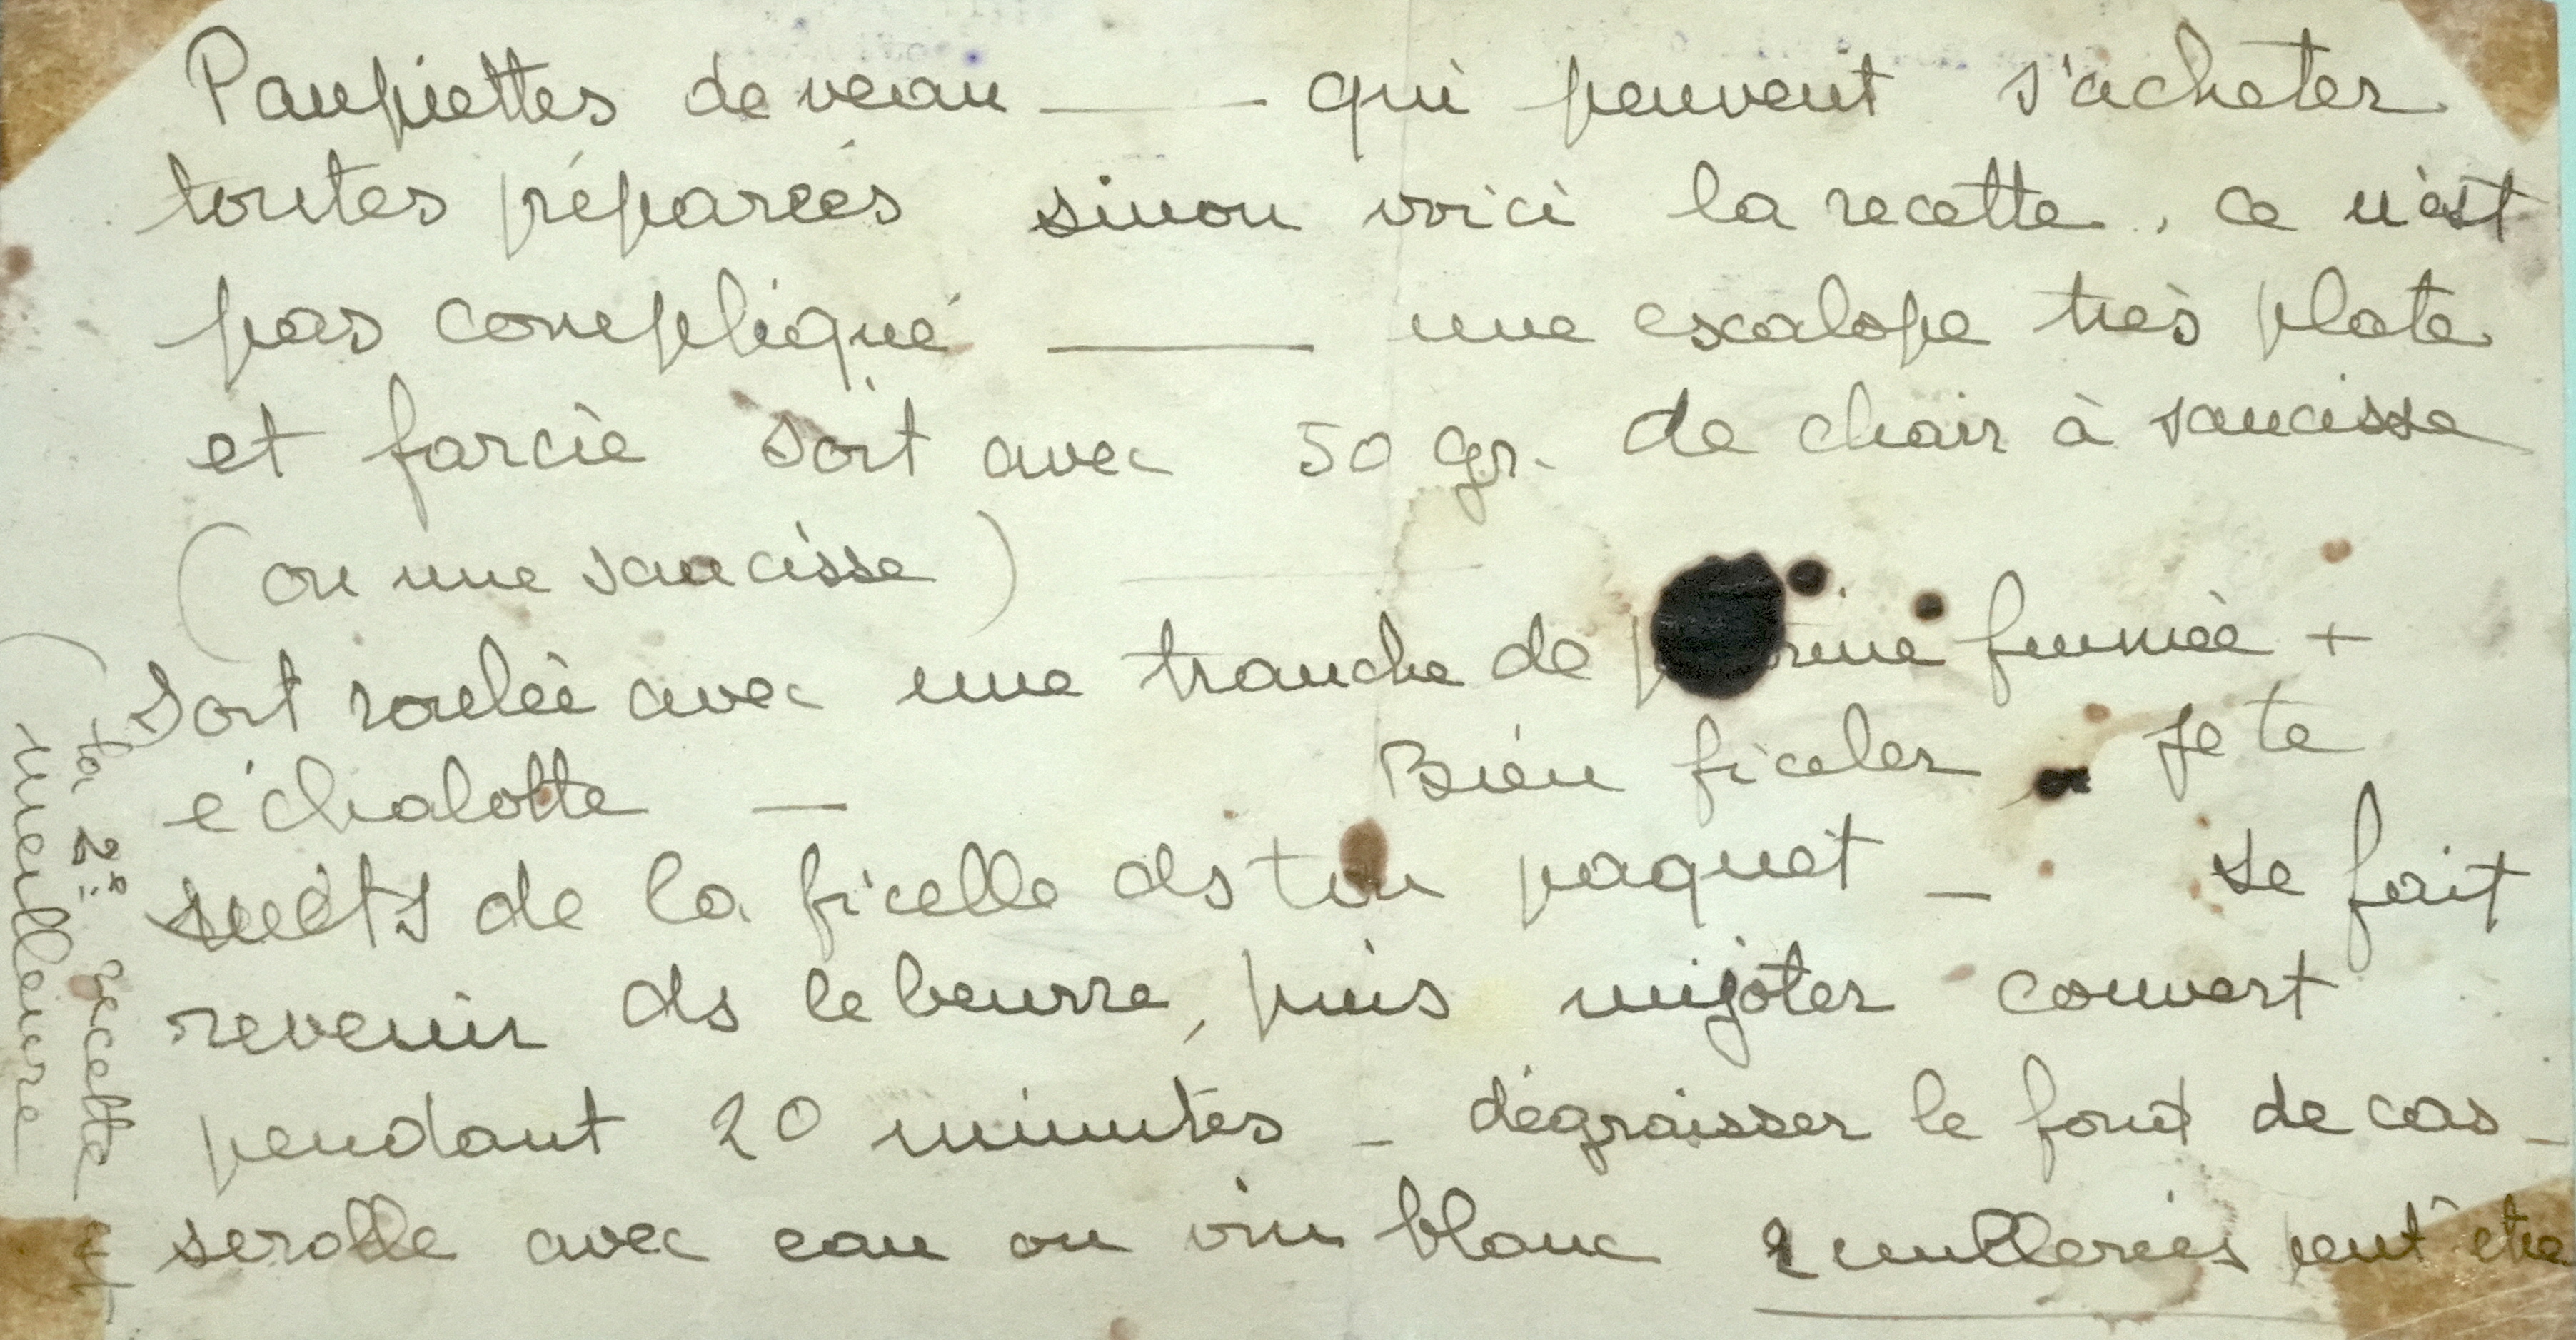 Paupiettes de veau — qui peuvent s'acheter
toutes préparées sinon voici la recette, ce n'est
pas compliqué — une escalope très plate
et farcie soit avec 50 gr. de chair à saucisse
(ou une saucisse)
soit roulée avec une tranche de fumée +
échalotte — Bien ficeler je te
mets de la ficelle ds ton paquet — se fait
revenir ds le beurre, puis mijoter couvert
pendant 20 minutes – dégraisser le fond de cas-
serolle avec eau ou vin blanc 2 cuillerées peut être
(la 2e recette est
meilleure